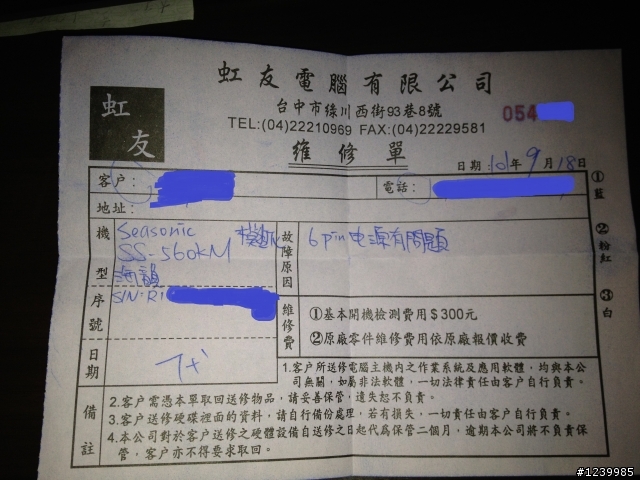 虹友電腦有限公司
虹友
台中市綠川西街93巷8號
054
TEL:(04)22210969 FAX:(04)22229581
維修單
日期:101年9月18日
客戶:
電話:
地址:
機型
Seasonic
SS-560KM
海韻
故障原因
6 pin 电源有問題
序號
S/N:R1
維修費
①基本開機檢測費用$300元
②原廠零件維修費用依原廠報價收費
日期
備註
1.客戶所送修電腦主機內之作業系統及應用軟體，均與本公
司無關，如屬非法軟體，一切法律責任由客戶自行負責。
2.客戶需憑本單取回送修物品，請妥善保管，遺失恕不負責。
3.客戶送修硬碟裡面的資料，請自行備份處理，若有損失，一切責任由客戶自行負責。
4.本公司對於客戶送修之硬體設備自送修之日起代為保管二個月，逾期本公司將不負責保
管，客戶亦不得要求取回。
①藍
②粉紅
③白
#1239985